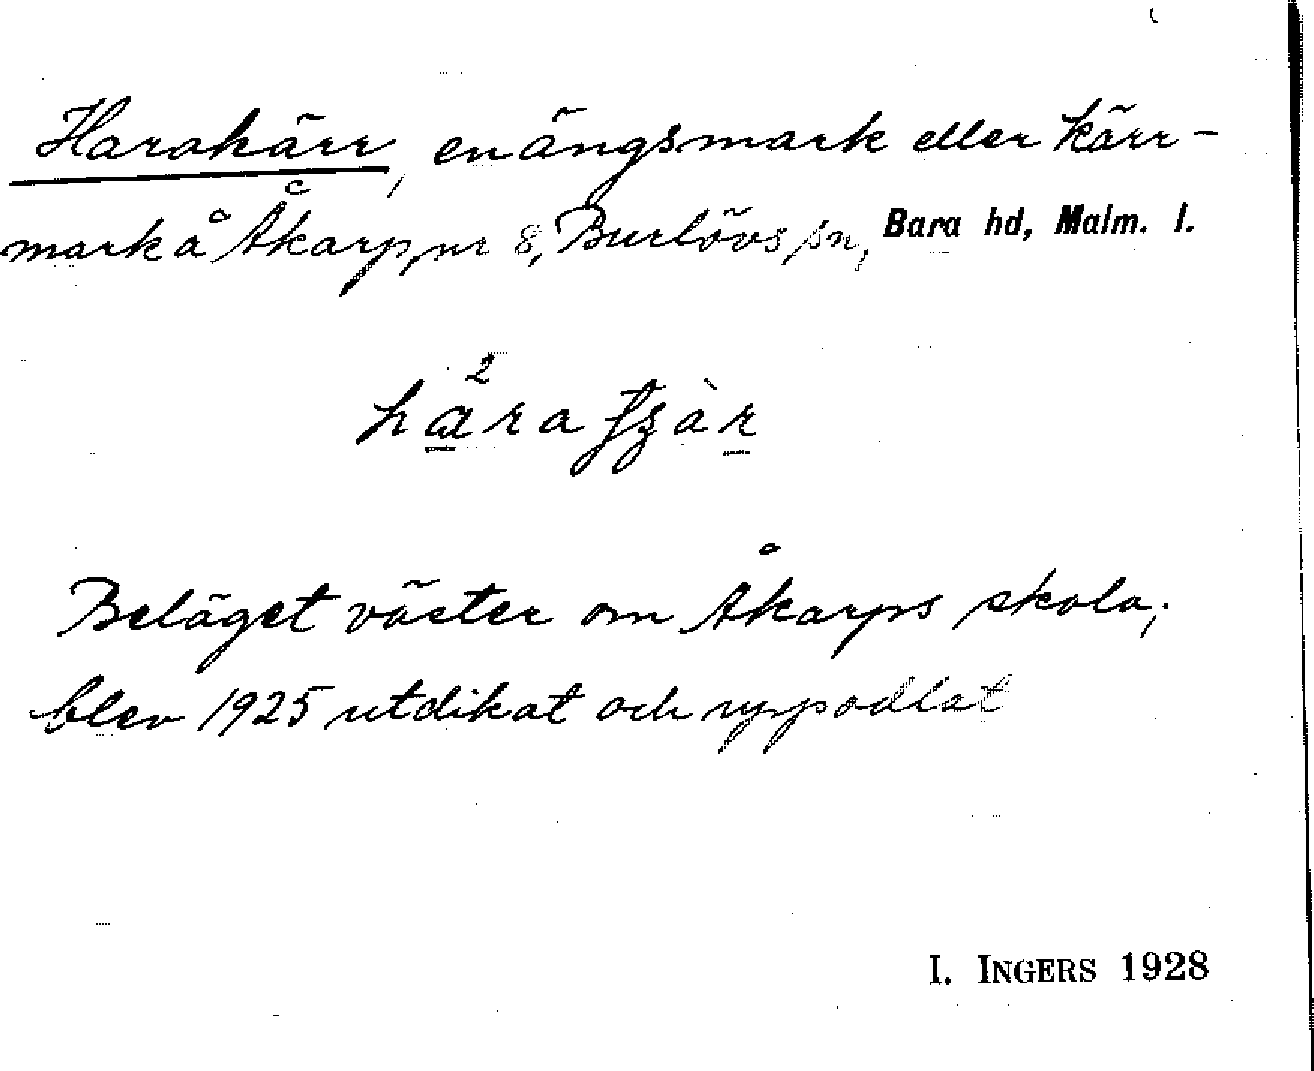 Harakärr, en ängsmark eller kärr-
mark å Åkarp nr 8, Burlövs sn, Bara hd, Malm. l.
Beläget väster om Åkarps skola;
blev 1925 utdikat och uppodlat
I. INGERS 1928